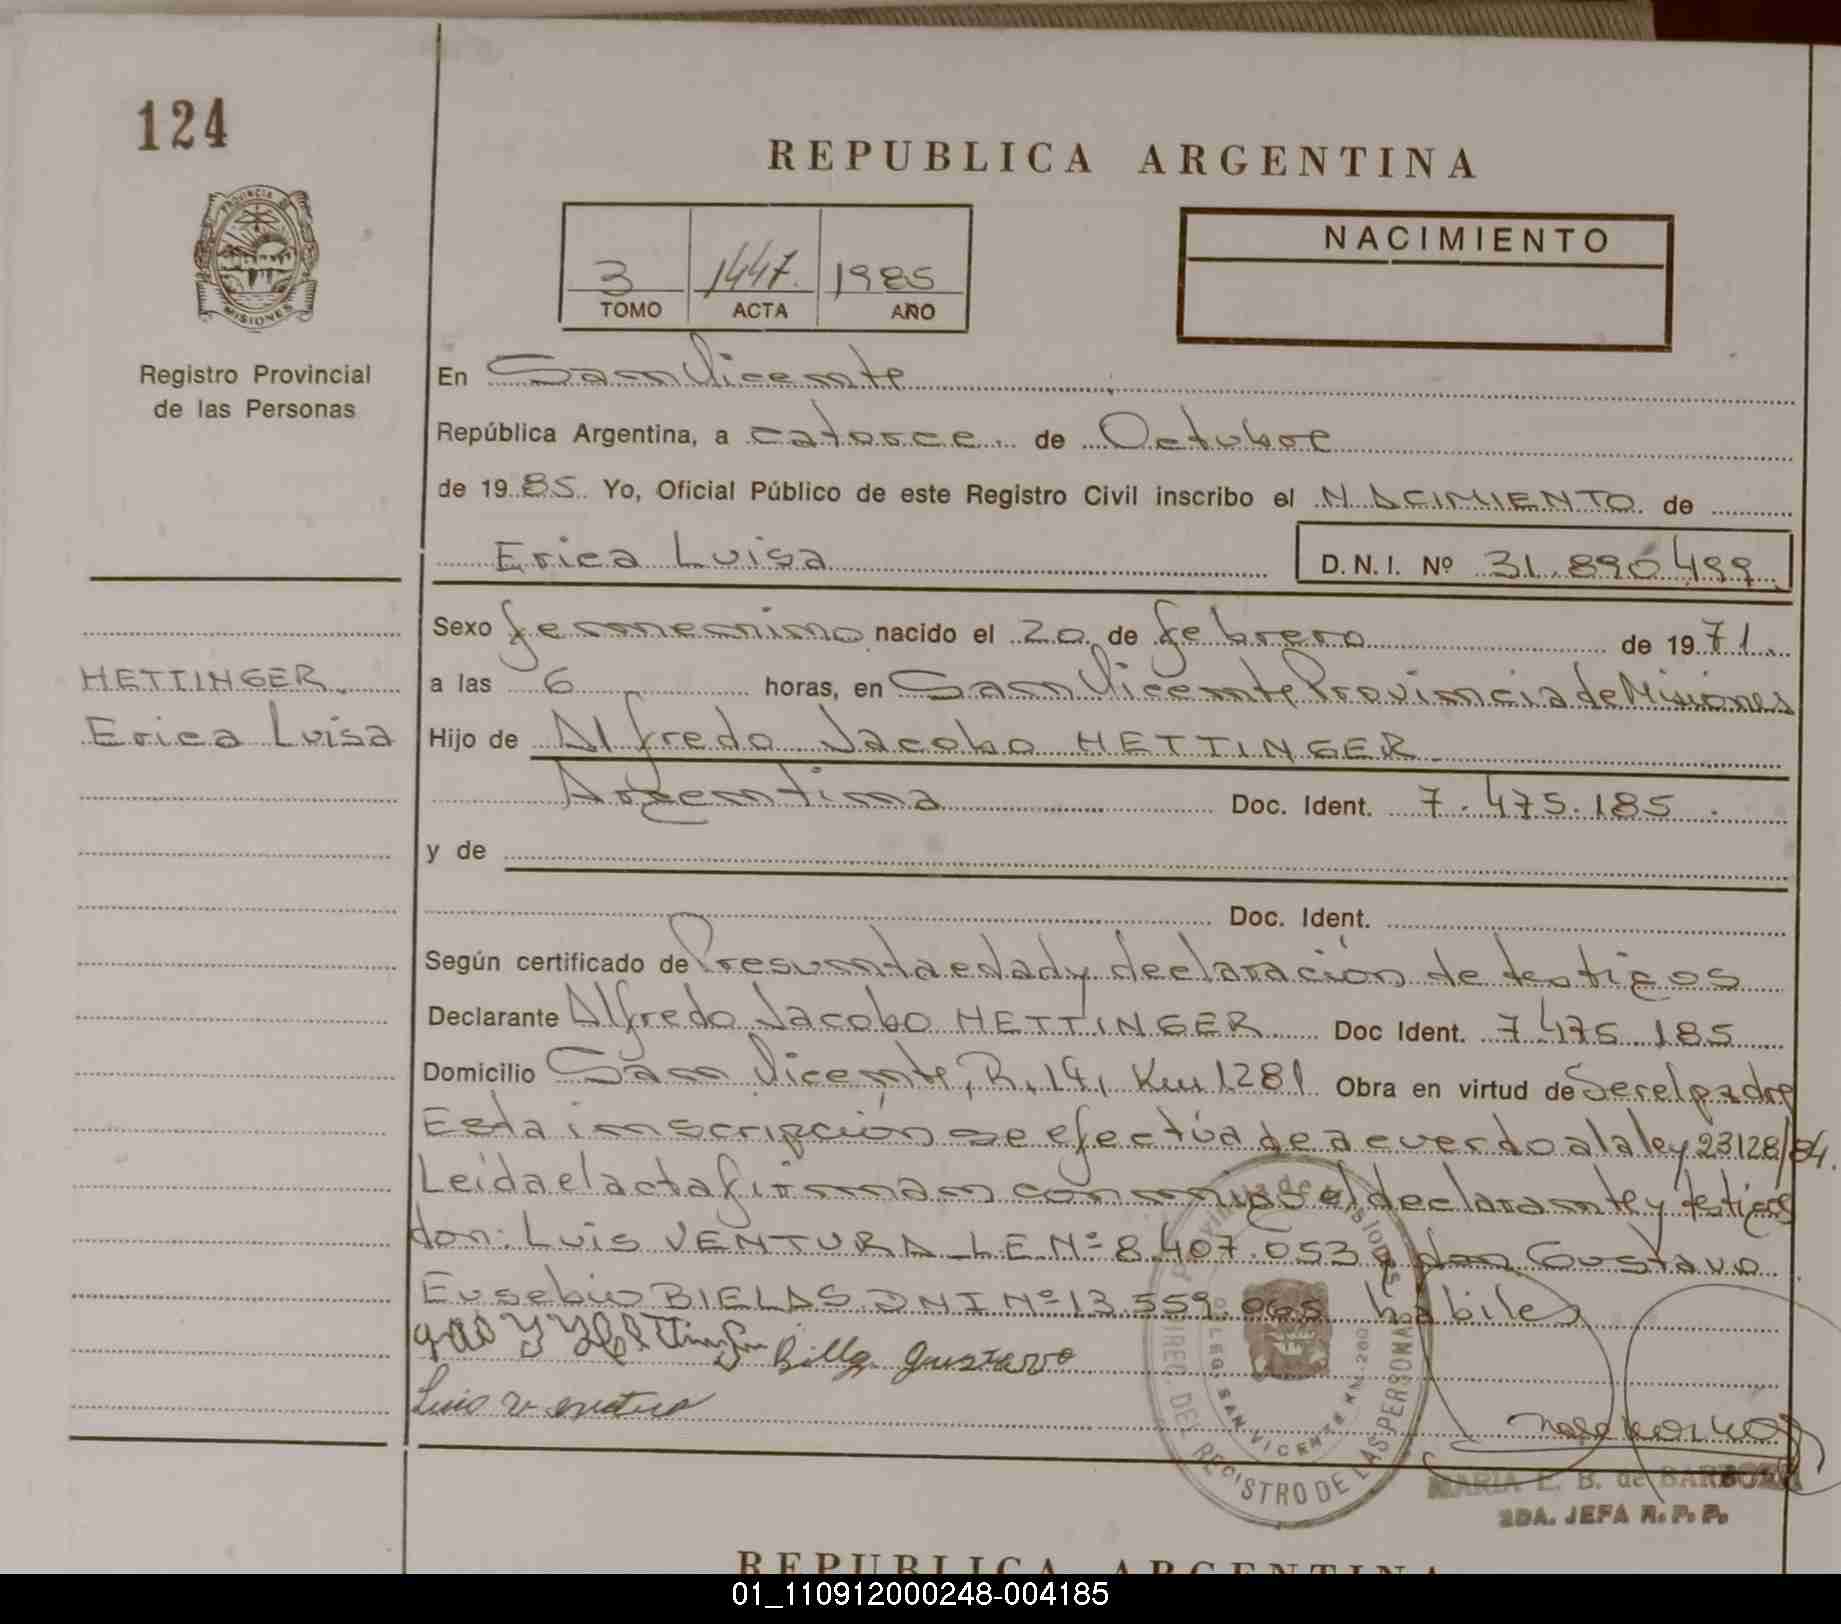 124
REPUBLICA ARGENTINA
PROVINCIA DE
MISIONES
Registro Provincial
de las Personas
3 1447. 1985
TOMO ACTA AÑO
NACIMIENTO
En San Vicente
República Argentina, a catorce de Octubre
de 1985 Yo, Oficial Público de este Registro Civil inscribo el NACIMIENTO de
Erica Luisa D.N.I. Nº 31.890.499
Sexo femenino nacido el 20 de febrero de 1971
HETTINGER
Erica Luisa
a las 6 horas, en San Vicente Provincia de Misiones
Hijo de Alfredo Jacobo HETTINGER
Argentina Doc. Ident. 7.475.185
y de
Doc. Ident.
Según certificado de Presunta edad y declaración de testigos
Declarante Alfredo Jacobo HETTINGER Doc Ident. 7.475.185
Domicilio San Vicente, R. 14, Km 1281 Obra en virtud de Ser el padre
Esta inscripción se efectúa de acuerdo a la ley 23128/84.
Leída el acta firman conmigo el declarante y testigos
don: Luis VENTURA LE Nº 8.407.053 y don Gustavo
Eusebio BIELAS DNI Nº 13.559.065 habiles
Gustavo
Luis Ventura
DIREC. DEL REGISTRO DE LAS PERSONAS
SAN VICENTE
MARIA E. B. de BARBOZA
2DA. JEFA R. P. P.
REPUBLICA ARGENTINA
01_110912000248-004185